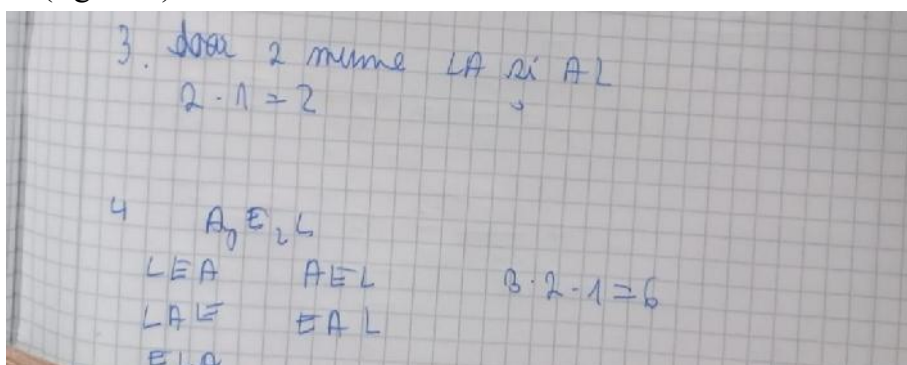 3. doar 2 nume LA și AL
2 · 1 = 2
4 A, E, L
LEA AEL
LAE EAL 3 · 2 · 1 = 6
ELA